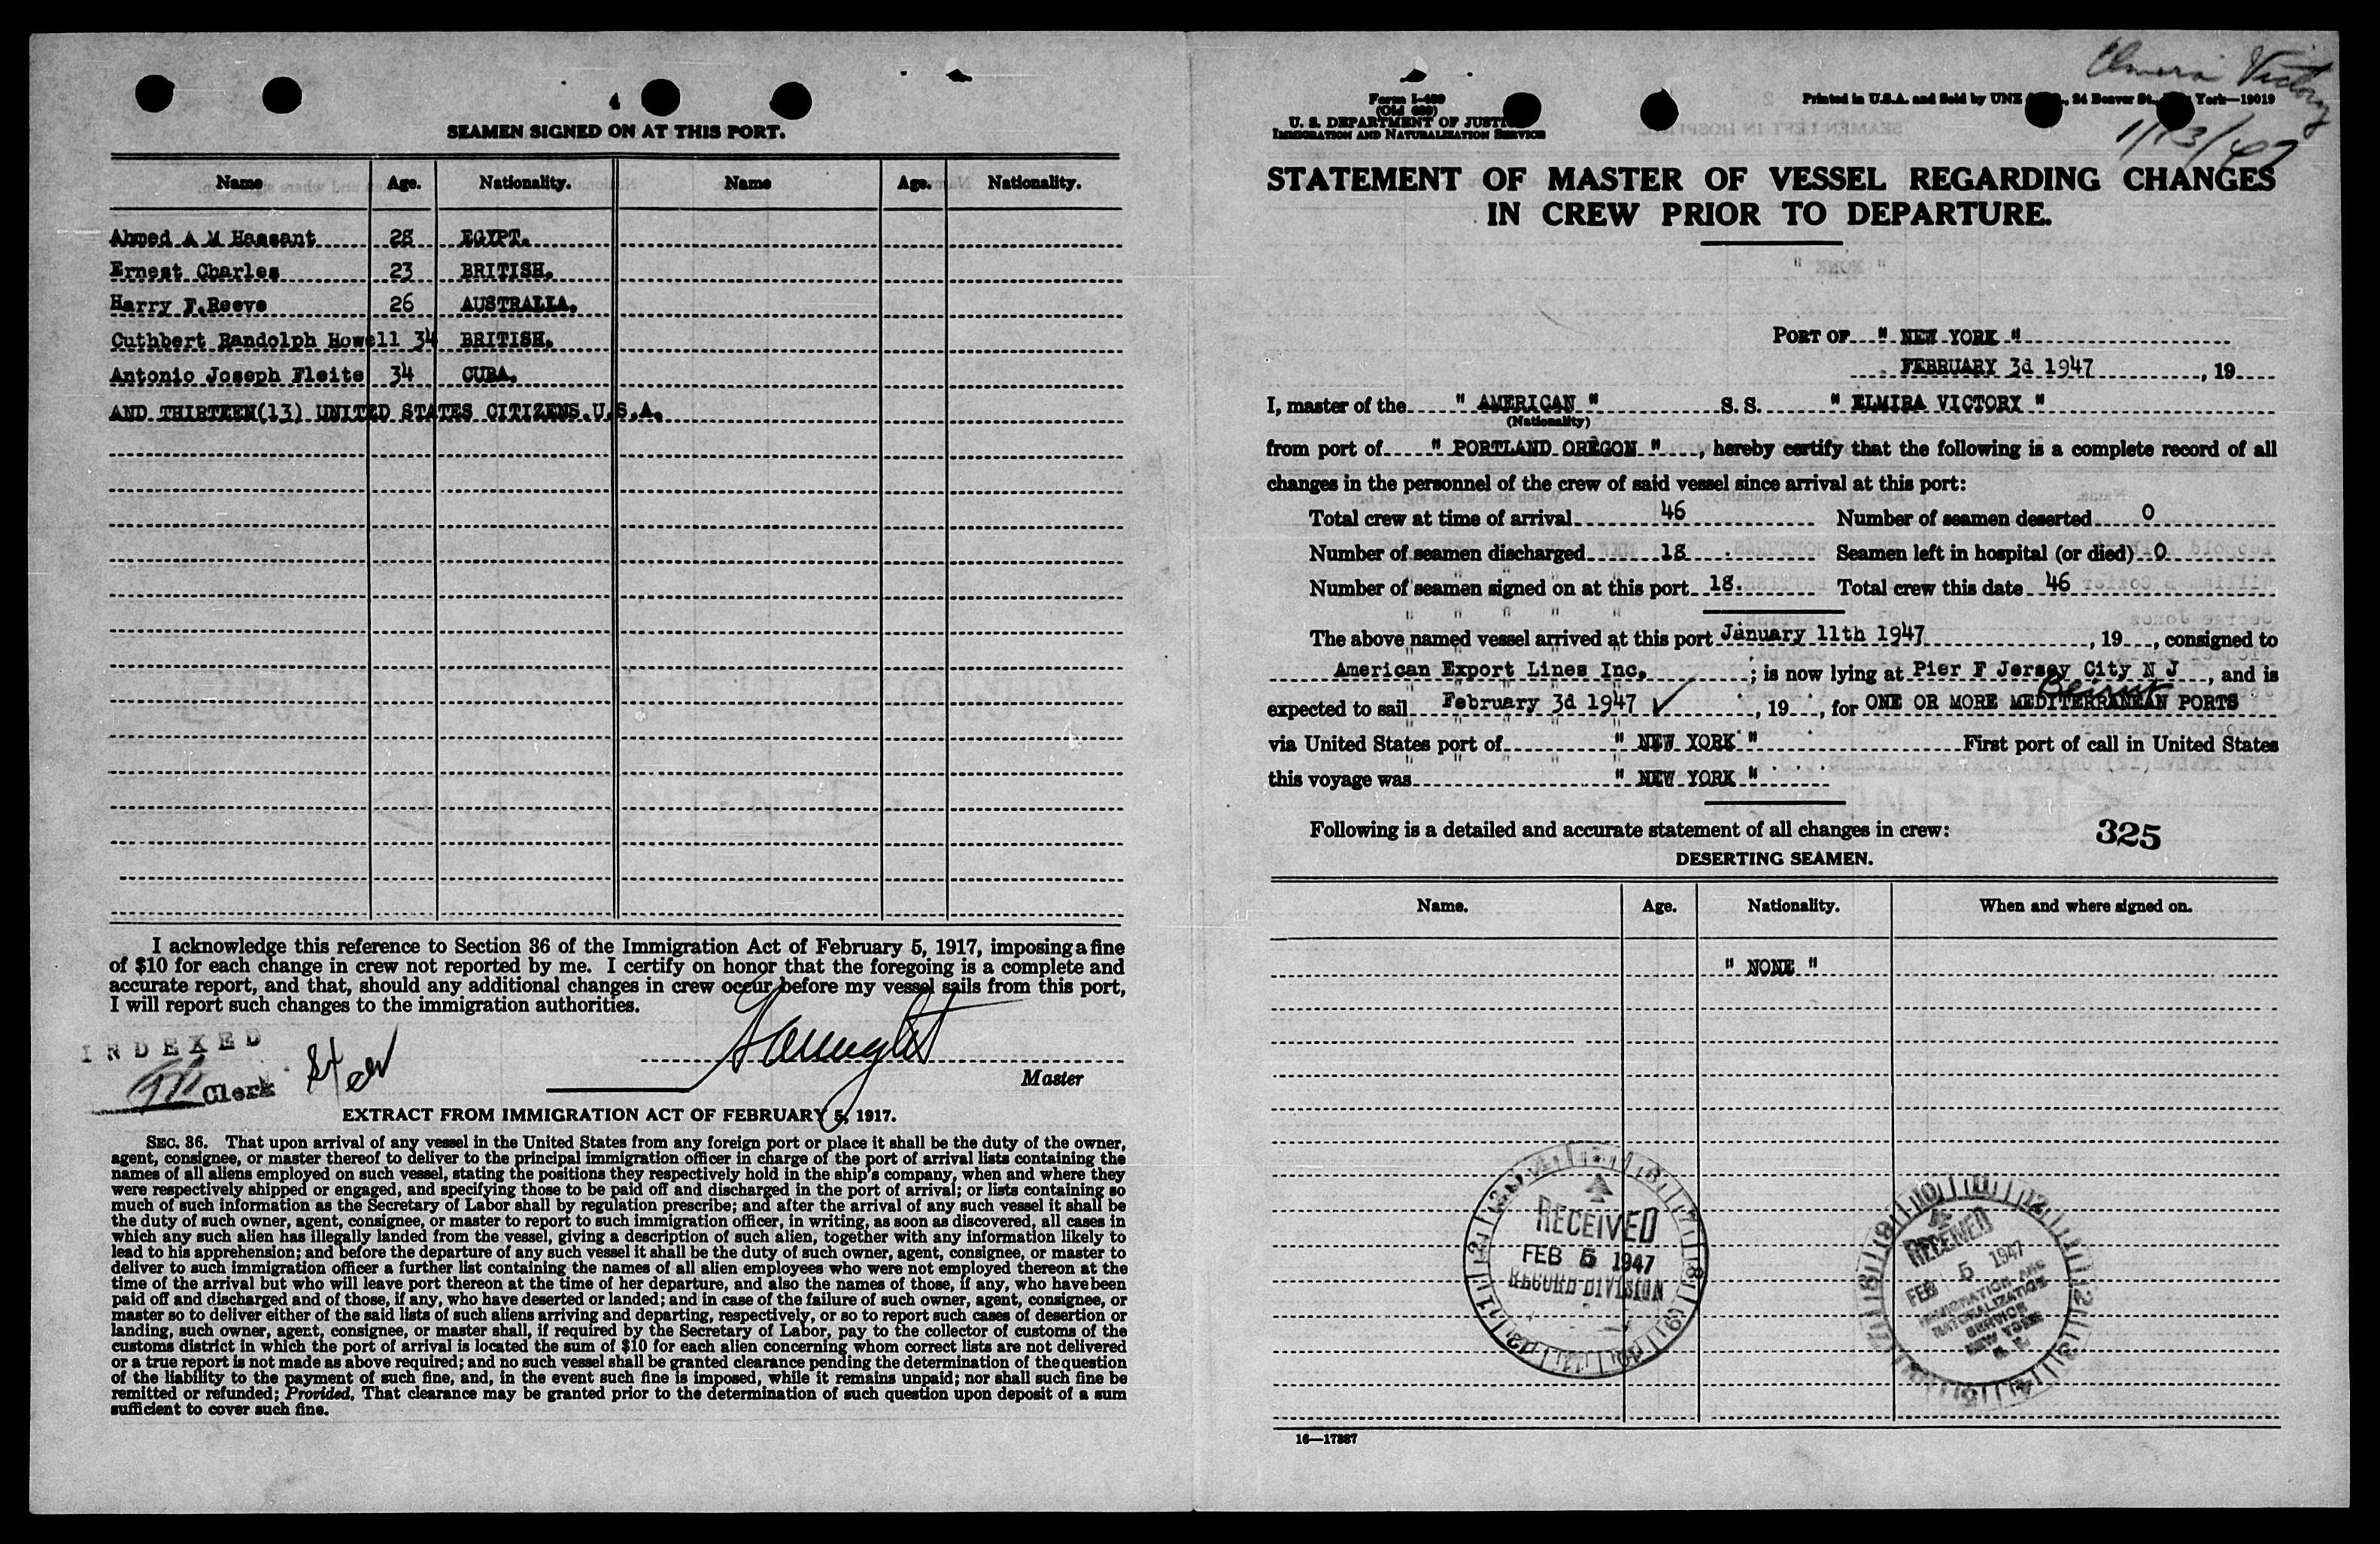 4
SEAMEN SIGNED ON AT THIS PORT.
Name Age. Nationality. Name Age. Nationality.
Ahmed A M Hassant 28 EGYPT.
Ernest Charles 23 BRITISH.
Harry F.Reeve 26 AUSTRALIA.
Cuthbert Randolph Howell 34 BRITISH.
Antonio Joseph Fleite 34 CUBA.
AND THIRTEEN(13) UNITED STATES CITIZENS.U.S.A.
I acknowledge this reference to Section 36 of the Immigration Act of February 5, 1917, imposing a fine
of $10 for each change in crew not reported by me. I certify on honor that the foregoing is a complete and
accurate report, and that, should any additional changes in crew occur before my vessel sails from this port,
I will report such changes to the immigration authorities.
INDEXED
Clerk
Master
EXTRACT FROM IMMIGRATION ACT OF FEBRUARY 5, 1917.
SEC. 36. That upon arrival of any vessel in the United States from any foreign port or place it shall be the duty of the owner,
agent, consignee, or master thereof to deliver to the principal immigration officer in charge of the port of arrival lists containing the
names of all aliens employed on such vessel, stating the positions they respectively hold in the ship's company, when and where they
were respectively shipped or engaged, and specifying those to be paid off and discharged in the port of arrival; or lists containing so
much of such information as the Secretary of Labor shall by regulation prescribe; and after the arrival of any such vessel it shall be
the duty of such owner, agent, consignee, or master to report to such immigration officer, in writing, as soon as discovered, all cases in
which any such alien has illegally landed from the vessel, giving a description of such alien, together with any information likely to
lead to his apprehension; and before the departure of any such vessel it shall be the duty of such owner, agent, consignee, or master to
deliver to such immigration officer a further list containing the names of all alien employees who were not employed thereon at the
time of the arrival but who will leave port thereon at the time of her departure, and also the names of those, if any, who have been
paid off and discharged and of those, if any, who have deserted or landed; and in case of the failure of such owner, agent, consignee, or
master so to deliver either of the said lists of such aliens arriving and departing, respectively, or so to report such cases of desertion or
landing, such owner, agent, consignee, or master shall, if required by the Secretary of Labor, pay to the collector of customs of the
customs district in which the port of arrival is located the sum of $10 for each alien concerning whom correct lists are not delivered
or a true report is not made as above required; and no such vessel shall be granted clearance pending the determination of the question
of the liability to the payment of such fine, and, in the event such fine is imposed, while it remains unpaid; nor shall such fine be
remitted or refunded; Provided, That clearance may be granted prior to the determination of such question upon deposit of a sum
sufficient to cover such fine.
Elmira Victory
1/13/47
Form I-489
(Old 689)
U. S. DEPARTMENT OF JUSTICE
IMMIGRATION AND NATURALIZATION SERVICE
Printed in U.S.A. and Sold by UNZ , 24 Beaver St., York—19019
STATEMENT OF MASTER OF VESSEL REGARDING CHANGES
IN CREW PRIOR TO DEPARTURE.
PORT OF " NEW YORK "
FEBRUARY 3d 1947, 19
I, master of the " AMERICAN " S. S. " ELMIRA VICTORY "
(Nationality)
from port of " PORTLAND OREGON ", hereby certify that the following is a complete record of all
changes in the personnel of the crew of said vessel since arrival at this port:
Total crew at time of arrival 46 Number of seamen deserted 0
Number of seamen discharged 18 Seamen left in hospital (or died) 0
Number of seamen signed on at this port 18. Total crew this date 46
The above named vessel arrived at this port January 11th 1947, 19, consigned to
American Export Lines Inc. ; is now lying at Pier F Jersey City N J, and is
Beirut
expected to sail February 3d 1947 ✓, 19, for ONE OR MORE MEDITERRANEAN PORTS
via United States port of " NEW YORK " First port of call in United States
this voyage was " NEW YORK "
Following is a detailed and accurate statement of all changes in crew: 325
DESERTING SEAMEN.
Name. Age. Nationality. When and where signed on.
" NONE "
RECEIVED
FEB 5 1947
RECORD DIVISION
RECEIVED
FEB 5 1947
IMMIGRATION AND
NATURALIZATION
SERVICE
NEW YORK
16—17887